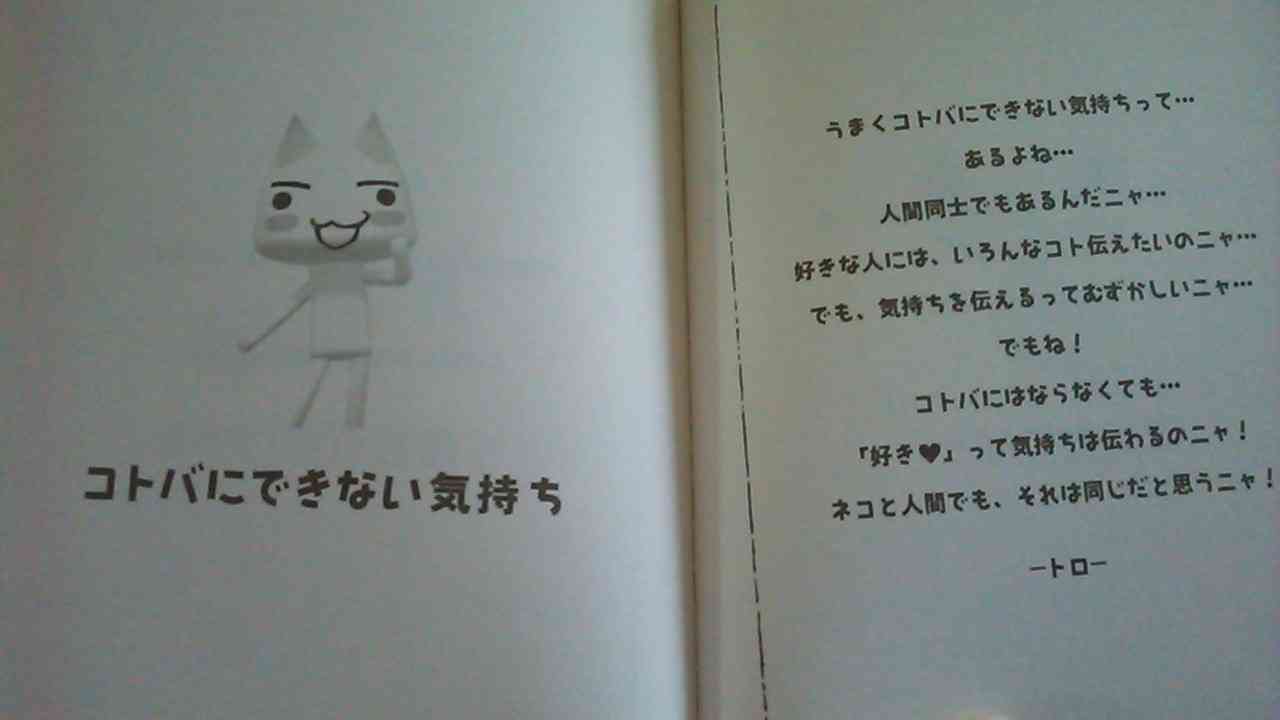 コトバにできない気持ち
うまくコトバにできない気持ちって…
あるよね…
人間同士でもあるんだニャ…
好きな人には、いろんなコト伝えたいのニャ…
でも、気持ちを伝えるってむずかしいニャ…
でもね！
コトバにはならなくても…
「好き♥」って気持ちは伝わるのニャ！
ネコと人間でも、それは同じだと思うニャ！
ートロー